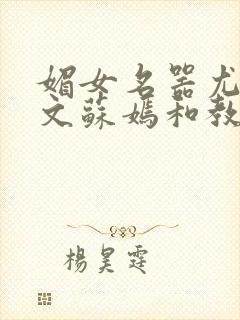 媚女名器尤
文蘇媽和教
楊昊霆